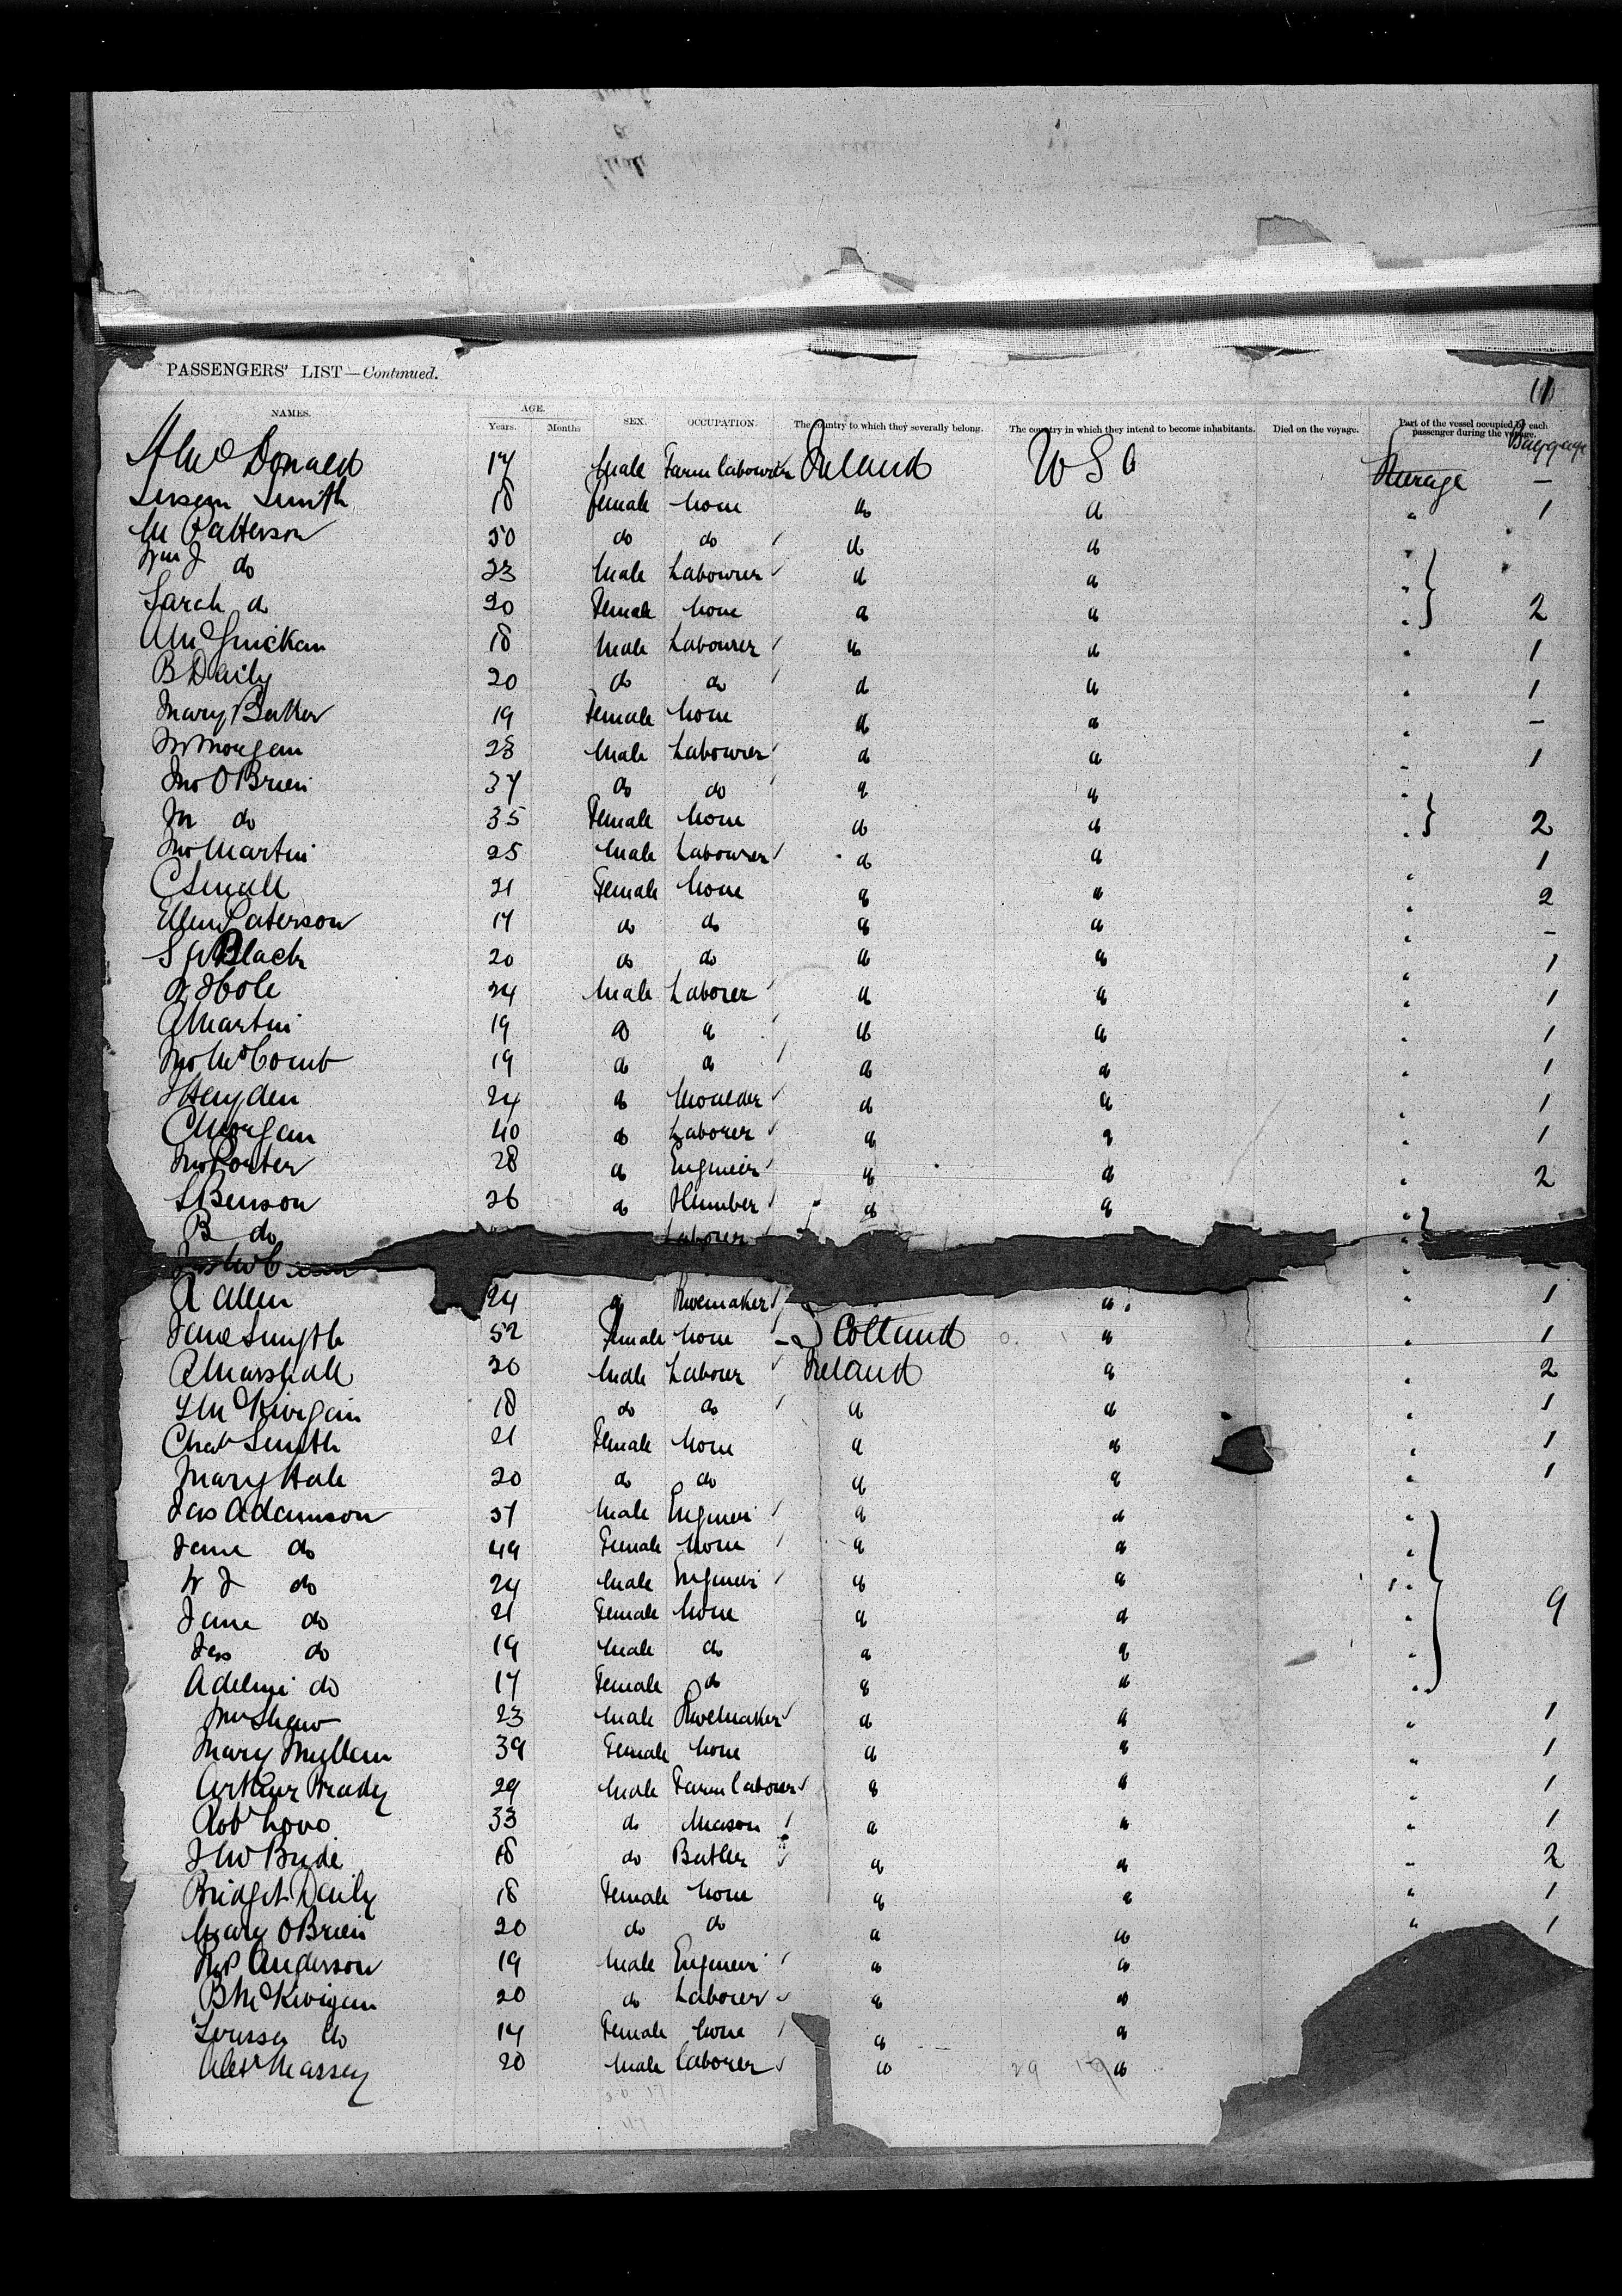 PASSENGERS' LIST—Continued.
NAMES. AGE. Years. Months SEX. OCCUPATION. The country to which they severally belong. The country in which they intend to become inhabitants. Died on the voyage. Part of the vessel occupied by each passenger during the voyage. Baggage
McDonald 17 Male Farm labourer Ireland USA Steerage –
Smith 18 female none do do " 1
M Patterson 50 do do do do "
Wm J do 23 Male Labourer do do "
Sarah do 20 Female none do do " 2
A McGuickan 18 Male Labourer do do " 1
B Daily 20 do do do do " 1
Mary Baker 19 Female none do do " –
Morgan 23 Male Labourer do do " 1
Jno O'Brien 37 do do do do "
M do 35 Female none do do " 2
Jno Martin 25 Male Labourer do do " 1
C Small 21 Female none do do " 2
Ellen Paterson 17 do do do do " –
S Black 20 do do do do " 1
24 Male Laborer do do " 1
A Martin 19 do do do do " 1
Jno McComb 19 do do do do " 1
J Hayden 24 do Moulder do do " 1
C Morgan 40 do Laborer do do " 1
Jno Porter 28 do Engineer do do " 2
S Benson 26 do Plumber do do "
B do Laborer "
A Allen 24 do Shoemaker do " 1
Jane Smyth 52 Female none Scotland do " 1
R Marshall 20 Male Labourer Ireland do " 2
McKivigan 18 do do do do " 1
Smith 21 Female none do do " 1
Mary Hale 20 do do do do " 1
Jas Adamson 51 Male Engineer do do "
Jane do 49 Female none do do "
W J do 24 Male Engineer do do "
Jane do 21 Female none do do " 9
Jas do 19 Male do do do "
Adeline do 17 Female do do do "
Shaw 23 Male Shoemaker do do " 1
Mary Mullan 39 Female none do do " 1
Arthur Brady 29 Male Farm laborer do do " 1
Robt Love 33 do Mason do do " 1
J McBride 18 do Butler do do " 2
Bridget Daily 18 Female none do do " 1
Mary O'Brien 20 do do do do " 1
Anderson 19 Male Engineer do do
B McKivigan 20 do Laborer do do
do 17 Female none do do
Alex Massey 20 Male laborer do do